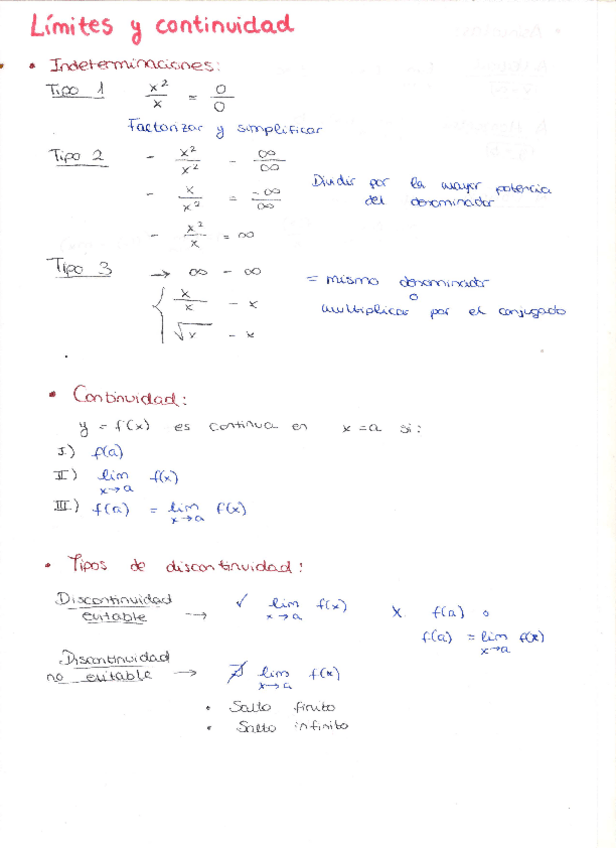 Límites y continuidad
• Indeterminaciones:
Tipo 1 x²/x = 0/0
Factorizar y simplificar
Tipo 2 - x²/x² - ∞/∞
- x/x² = -∞/∞ Dividir por la mayor potencia del denominador
- x²/x = ∞
Tipo 3 → ∞ - ∞ = mismo denominador
o
{ x/x - x multiplicar por el conjugado
√x - x
• Continuidad:
y = f(x) es continua en x = a si:
I.) f(a)
II) lim x→a f(x)
III.) f(a) = lim x→a f(x)
• Tipos de discontinuidad:
Discontinuidad evitable → ✓ lim x→a f(x) X f(a) o
f(a) = lim x→a f(x)
Discontinuidad no evitable → ∄ lim x→a f(x)
• Salto finito
• Salto infinito